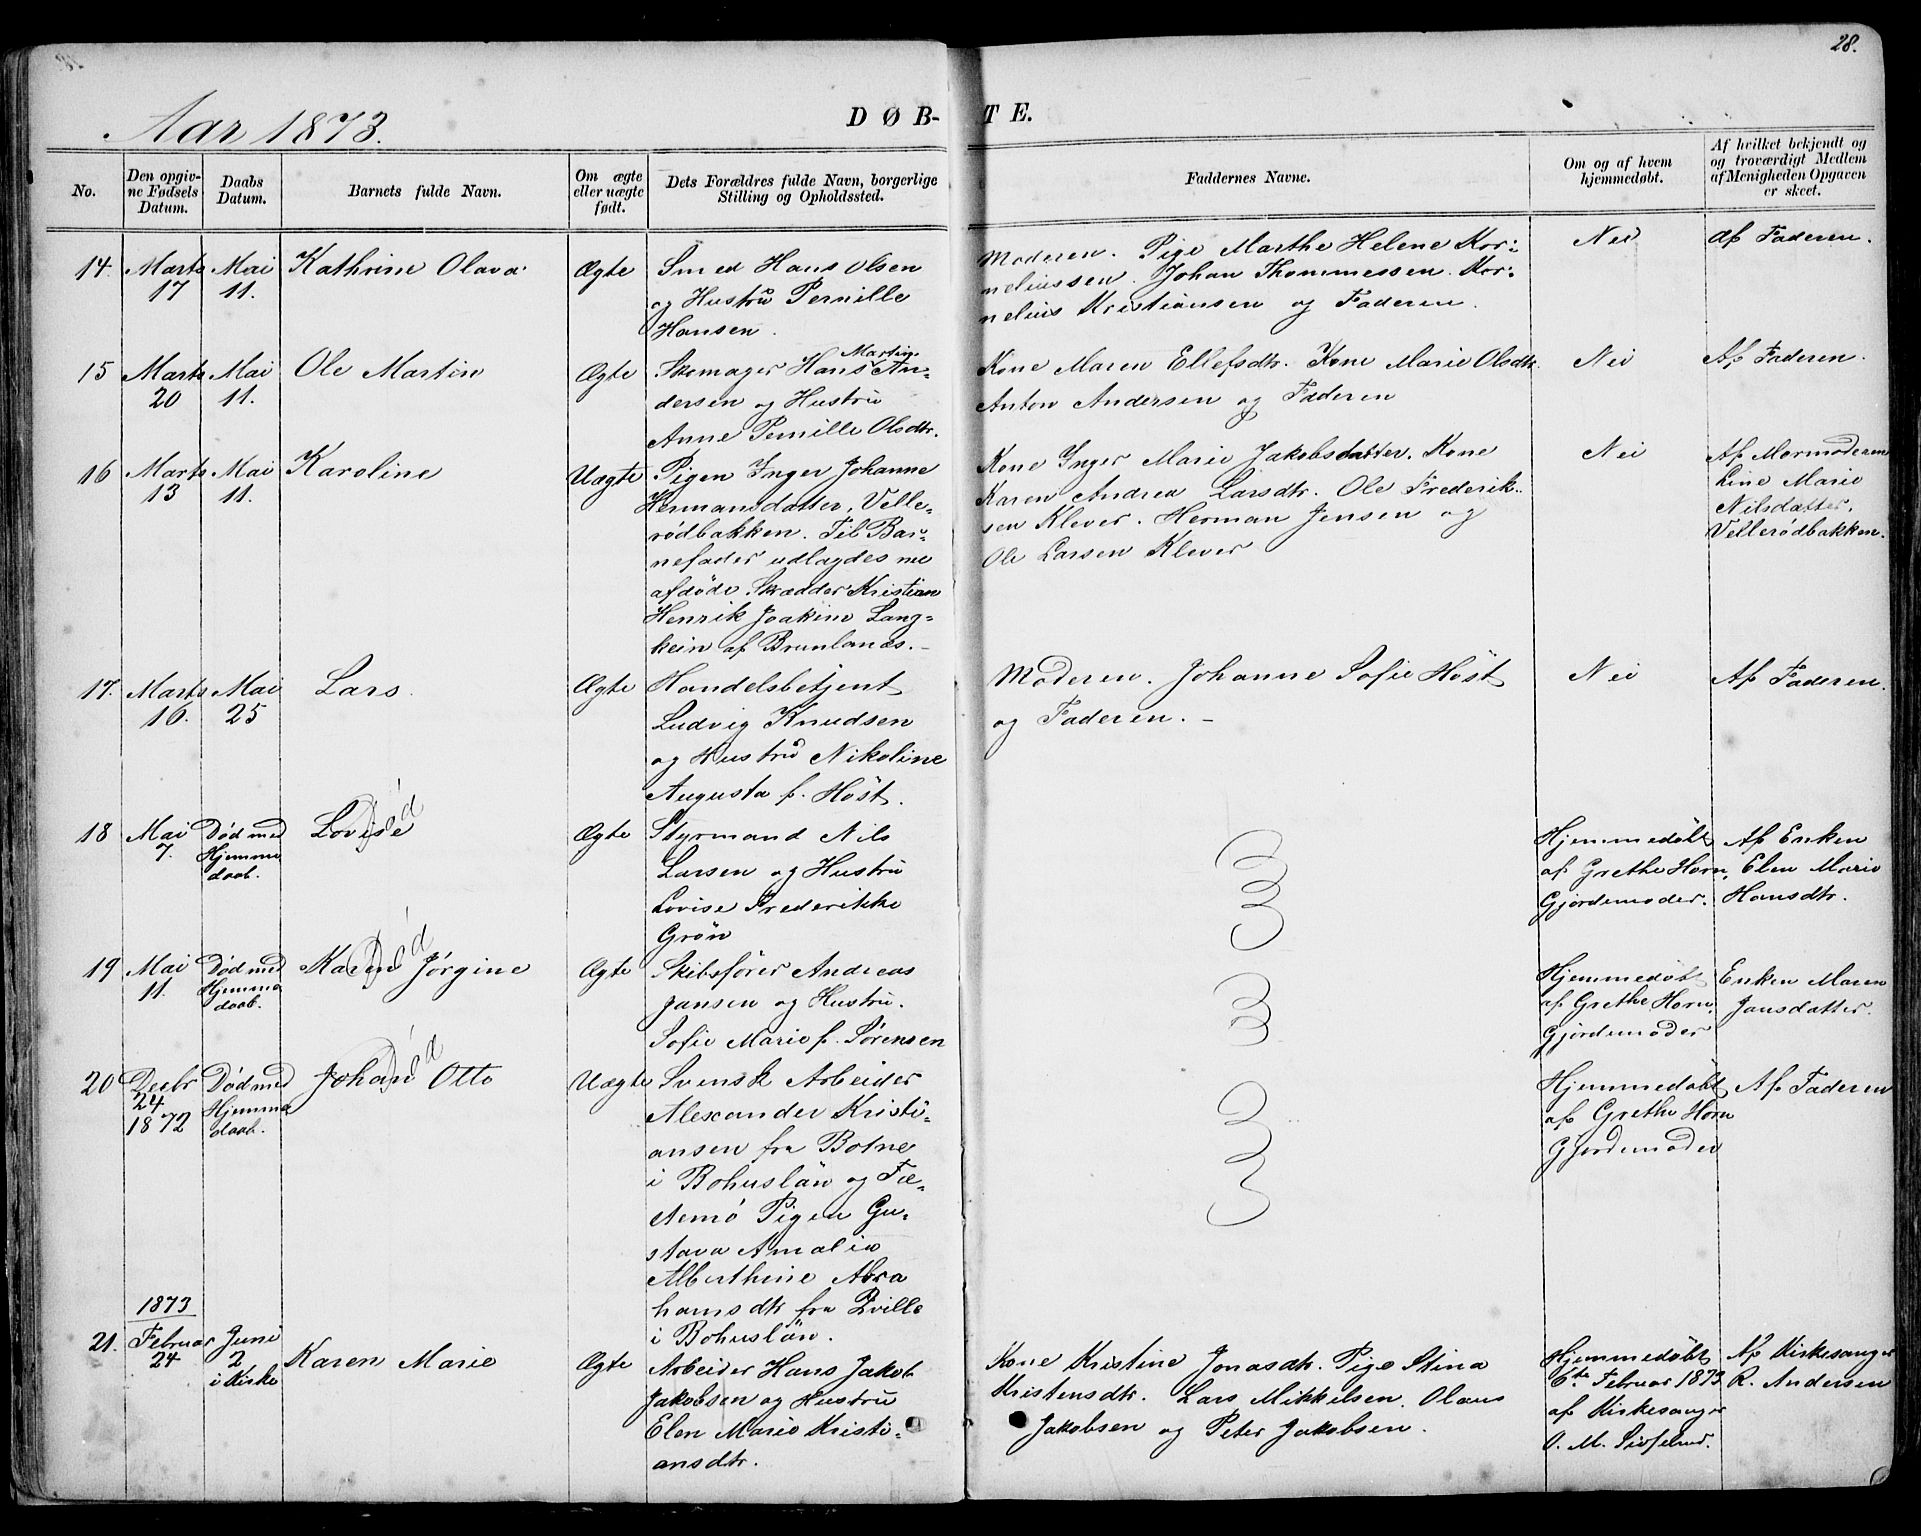 28.
Aar 1873.
DØB-
TE.
No.
Den opgiv-
ne Fødsels
Datum.
Daabs
Datum.
Barnets fulde Navn.
Om ægte
eller uægte
født.
Dets Forældres fulde Navn, borgerlige
Stilling og Opholdssted.
Faddernes Navne.
Om og af hvem
hjemmedøbt.
Af hvilket bekjendt og
og troværdigt Medlem
af Menigheden Opgaven
er skeet.
14.
Marts
17
Mai
11.
Kathrine Olava
Ægte
Smed Hans Olsen
og Hustru Pernille
Hansen.
Moderen. Pige Marthe Helene Kor-
neliussen. Johan Thommessen. Kor-
nelius Kristiansen og Faderen.
Nei
Af Faderen.
15
Marts
20
Mai
11.
Ole Martin
Ægte
Martin
Skomager Hans An-
dersen og Hustru
Anne Pernille Olsdtr.
Kone Maren Ellefsdtr. Kone Marie Olsdtr.
Anton Andersen og Faderen
Nei
Af Faderen.
16
Marts
13
Mai
11.
Karoline
Uægte
Pigen Inger Johanne
Hermansdatter, Velle-
rødbakken. Til Bar-
nefader udlagdes nu
afdøde Skrædder Kristian
Henrik Joakim Lang-
hein af Brunlanæs.-
Kone Inger Marie Jakobsdatter. Kone
Karen Andrea Larsdtr. Ole Frederik-
sen Klever. Herman Jensen og
Ole Larsen Klever
Nei
Af Mormoderen
Line Marie
Nilsdatter,
Vellerødbakken.
17.
Marts
16.
Mai
25
Lars.
Ægte
Handelsbetjent
Ludvig Knudsen
og Hustru Nikoline
Augusta f. Höst.
Moderen. Johanne Sofie Höst
og Faderen.-
Nei
Af Faderen.
18
Mai
7.
Død med
Hjemme
daab.
Lovise
Død
Ægte
Styrmand Nils
Larsen og Hustru
Lovise Frederikke
Grön
Hjemmedøbt
af Grethe Horn,
Gjordemoder.
Af Enken
Elen Marie
Hansdtr.
19
Mai
11.
Død med
Hjemme
daab.
Karen Jørgine
Død
Ægte
Skibsfører Andreas
Jansen og Hustru
Sofie Marie f. Sørensen
Hjemmedøbt
af Grethe Horn,
Gjordemoder
Enken Maren
Jansdatter.
20
Decbr
24
1872
Død med
Hjemme
daab.
Johan Otto
Død
Uægte
Svensk Arbeider
Alexander Kristi-
ansen fra Botne
i Bohuslän og Fæ-
stemø Pigen Gu-
stava Amalia
Alberthine Abra
hamsdtr fra Qville
i Bohuslän.
Hjemmedøbt
af Grethe Horn
Gjordemoder
Af Faderen
1873
21.
Februar
24
Juni
2
i Kirke
Karen Marie
Ægte
Arbeider Hans Jakob
Jakobsen og Hustru
Elen Marie Kristi-
ansdtr.
Kone Kristine Jonasdtr. Pige Stina
Kristensdtr. Lars Mikkelsen. Olaus
Jakobsen og Peter Jakobsen.
Hjemmedøbt
6te Februar 1873
af Kirkesanger
O. M.
Af Kirkesanger
R. Andersen